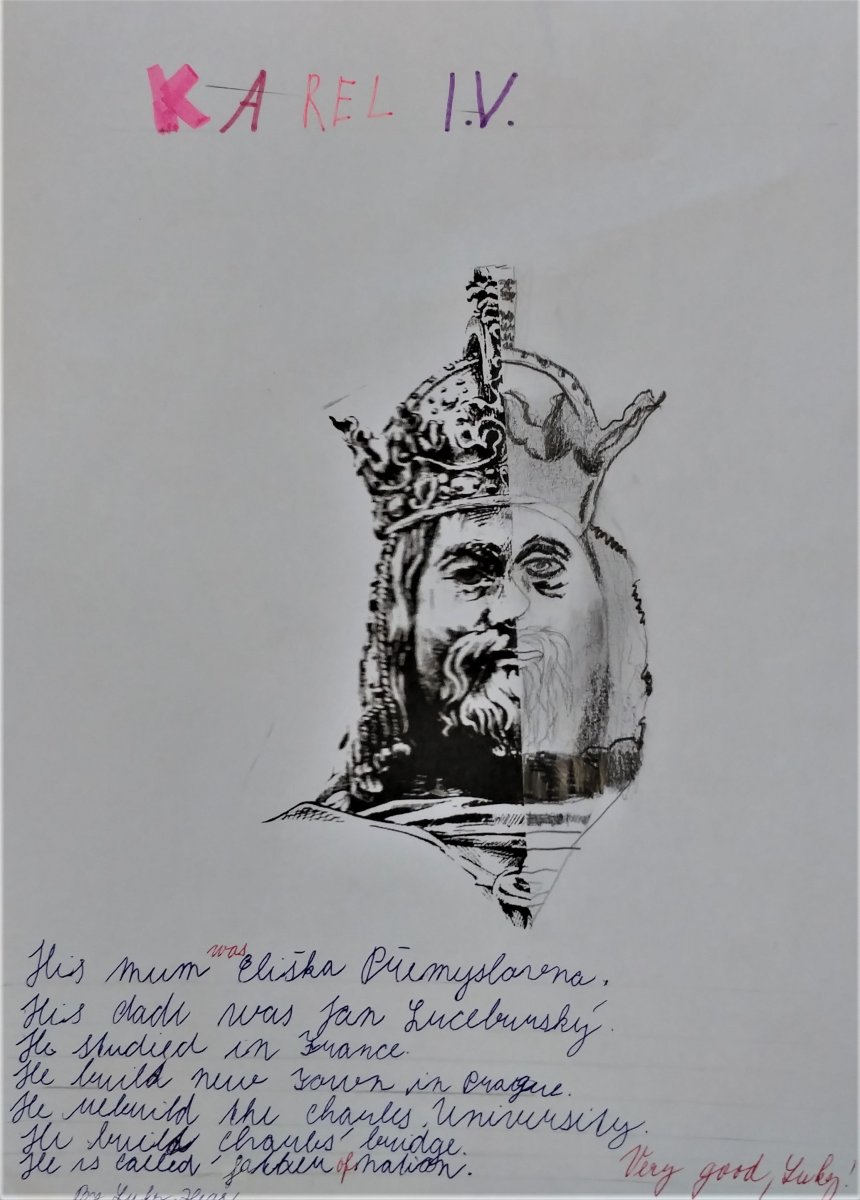 KAREL I.V.
His mum was Eliška Přemyslovna.
His dade was Jan Lucemburský.
He studied in France.
He build new Town in Prague.
He rebuild the Charles University.
He build Charles' bridge.
He is called father of nation.
Very good, Luky!
By